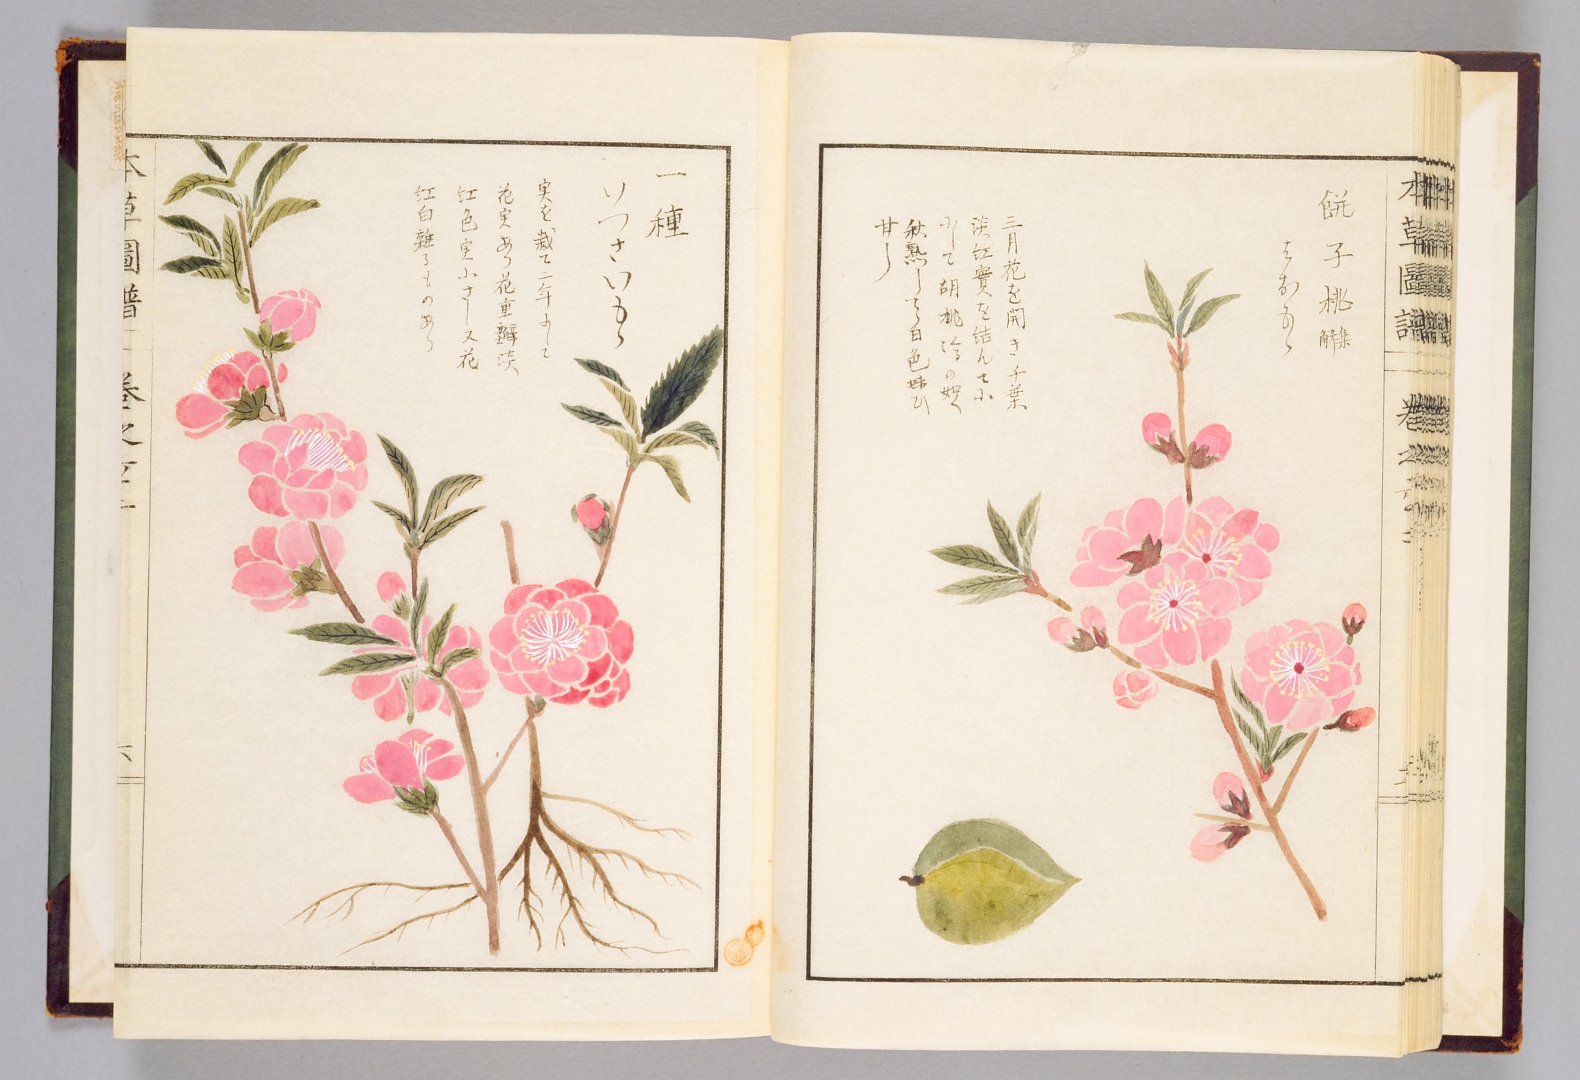 本草圖譜 卷之六十二
餅子桃 集解
三月花を開き千葉
淡紅實を結んで小
にして胡桃
秋熟して白色味ひ
甘し
一種
いつさいもゝ
実を栽て二年にして
花実あり花重瓣淡
紅色実小さし又花
紅白雜るものあり
本草圖譜 卷之六十一
六